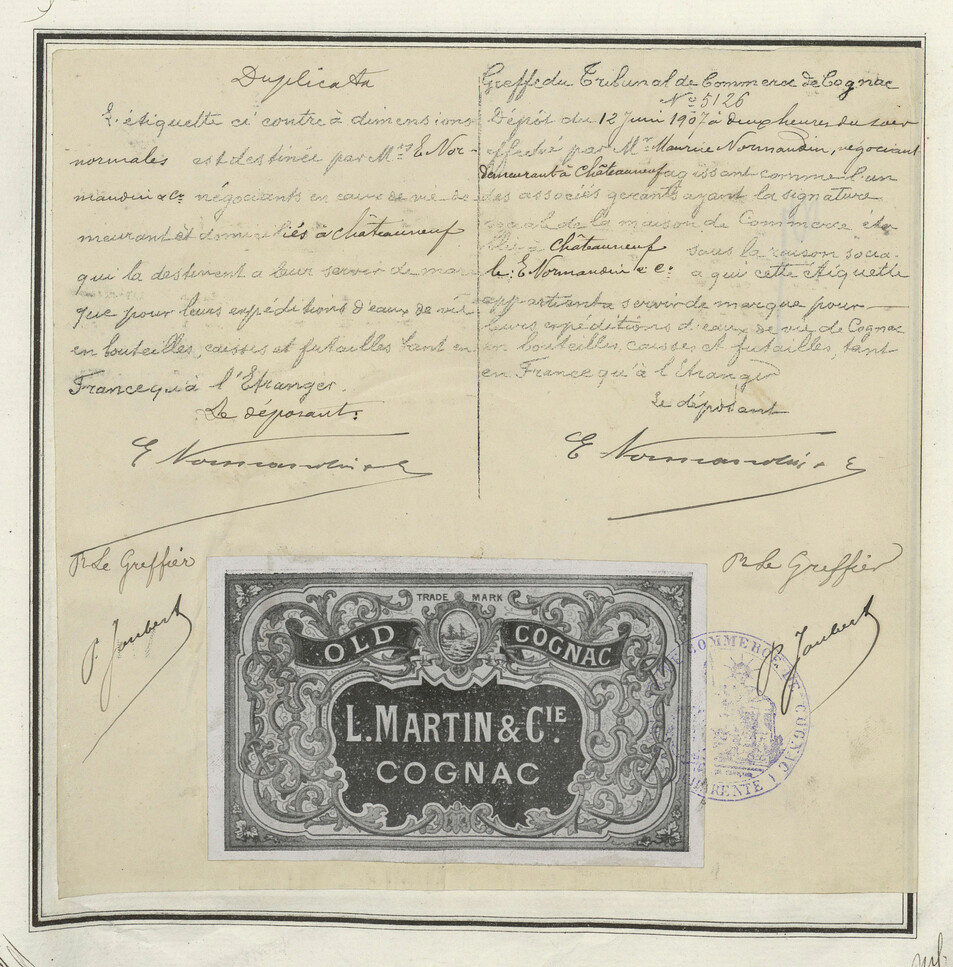 Duplicata
L'étiquette ci contre à dimensions
normales est destinée par Mrs E. Nor-
mandin & Cie négociants en eaux de vie de-
meurant et domiciliés à Châteauneuf
qui la destinent a leur servir de mar-
que pour leurs expéditions d'eaux de vie
en bouteilles, caisses et futailles tant en
France qu'à l'Etranger.
Le déposant.
E Normandin & C
Pr Le Greffier
P. Jaubert
Greffe du Tribunal de Commerce de Cognac
No 5126
Dépot du 12 Juin 1907 à deux heures du soir
effectué par Mr Maurice Normandin, négociant
demeurant à Châteauneuf agissant comme l'un
des associés gerants ayant la signature
de la maison de Commerce éta-
blie à Châteauneuf sous la raison socia-
le: E. Normandin & Co. a qui cette étiquette
appartient a servir de marque pour
leurs expéditions d'eaux de vie de Cognac
en bouteilles, caisses et futailles, tant
en France qu'à l'Etranger
Le déposant
E Normandin & C
Pr Le Greffier
P. Jaubert
TRADE MARK
OLD COGNAC
L. MARTIN & CIE.
COGNAC
COMMERCE DE COGNAC
CHARENTE